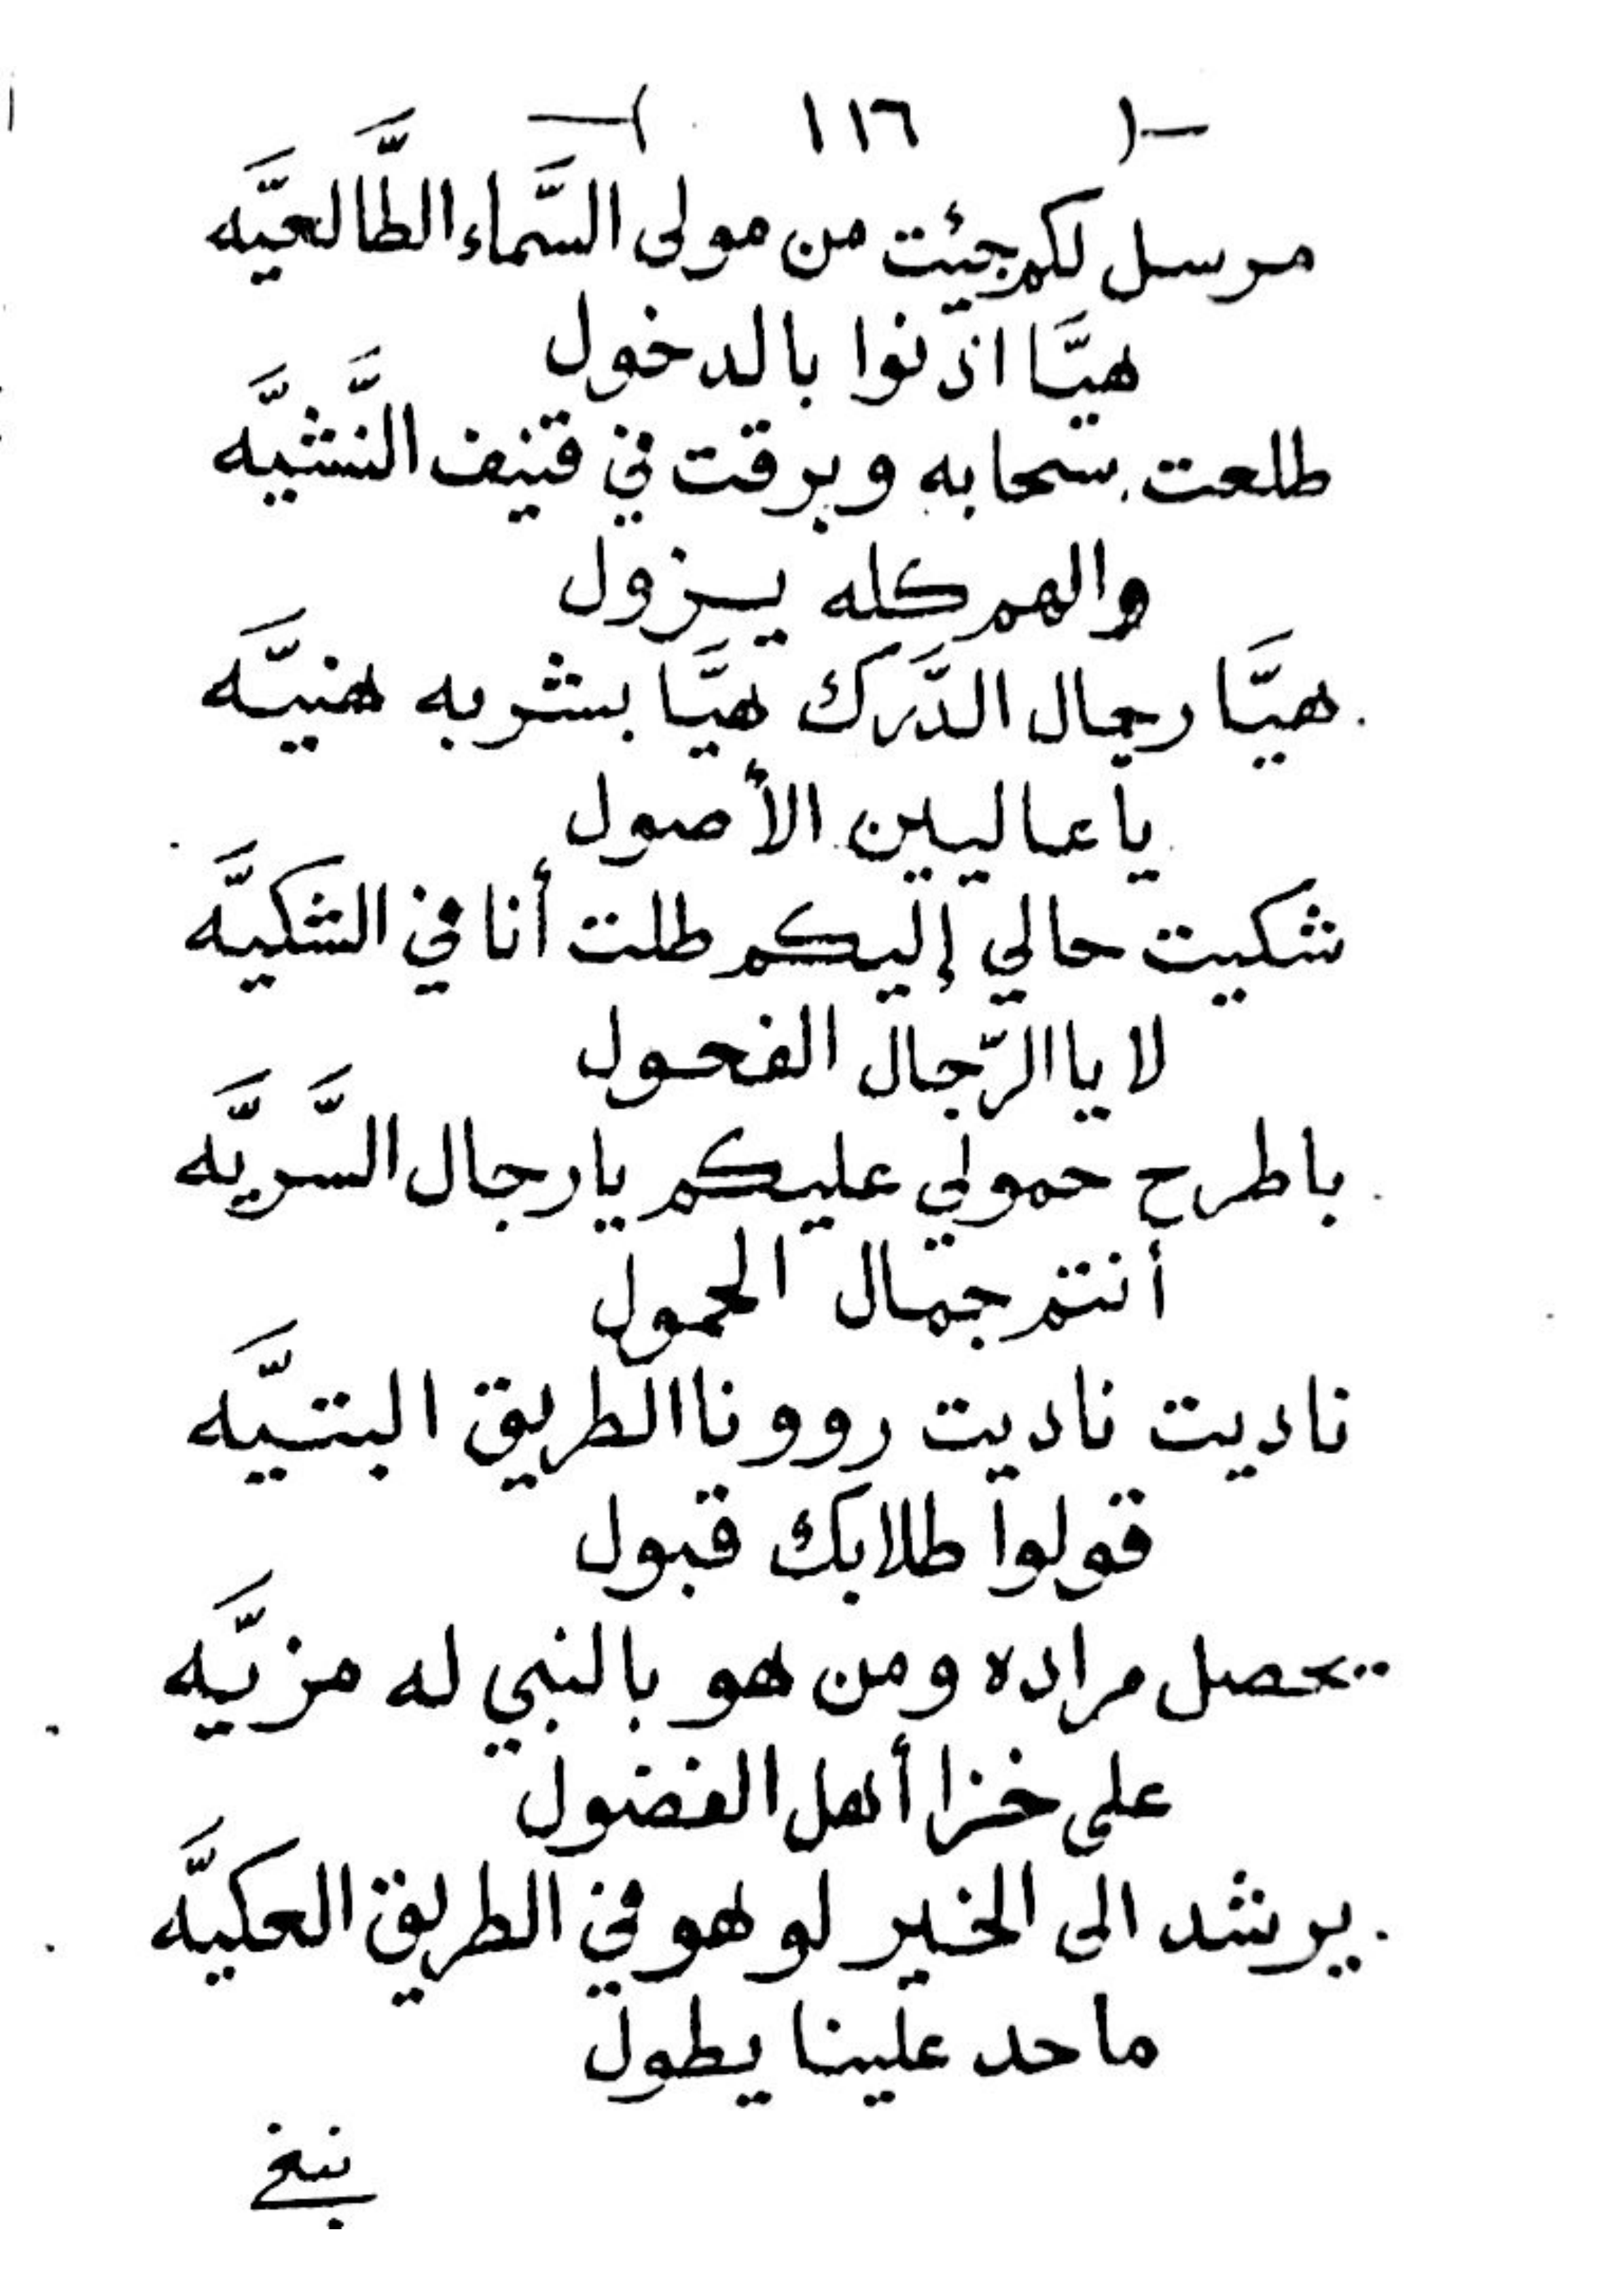 -( ١١٦ )-
مرسل لكم جئت من مولى السَّماء الطَّالعيَّه
هيَّا اذنوا بالدخول
طلعت سحابه وبرقت في قنيف النَّشيَّه
والهم كله يزول
هيَّا رجال الدَّرك هيَّا بشربه هنيَّه
يا عاليين الأصول
شكيت حالي إليكم طلت أنا في الشكيَّه
لا يا الرّجال الفحول
باطرح حمولي عليكم يا رجال السَّريَّه
أنتم جمال الحمول
ناديت ناديت روونا الطريق البتيَّه
قولوا طلابك قبول
يحصل مراده ومن هو بالنبي له مزيَّه
على خزا أهل الفضول
يرشد الى الخير لو هو في الطريق العكيَّه
ماحد علينا يطول
ينبغي